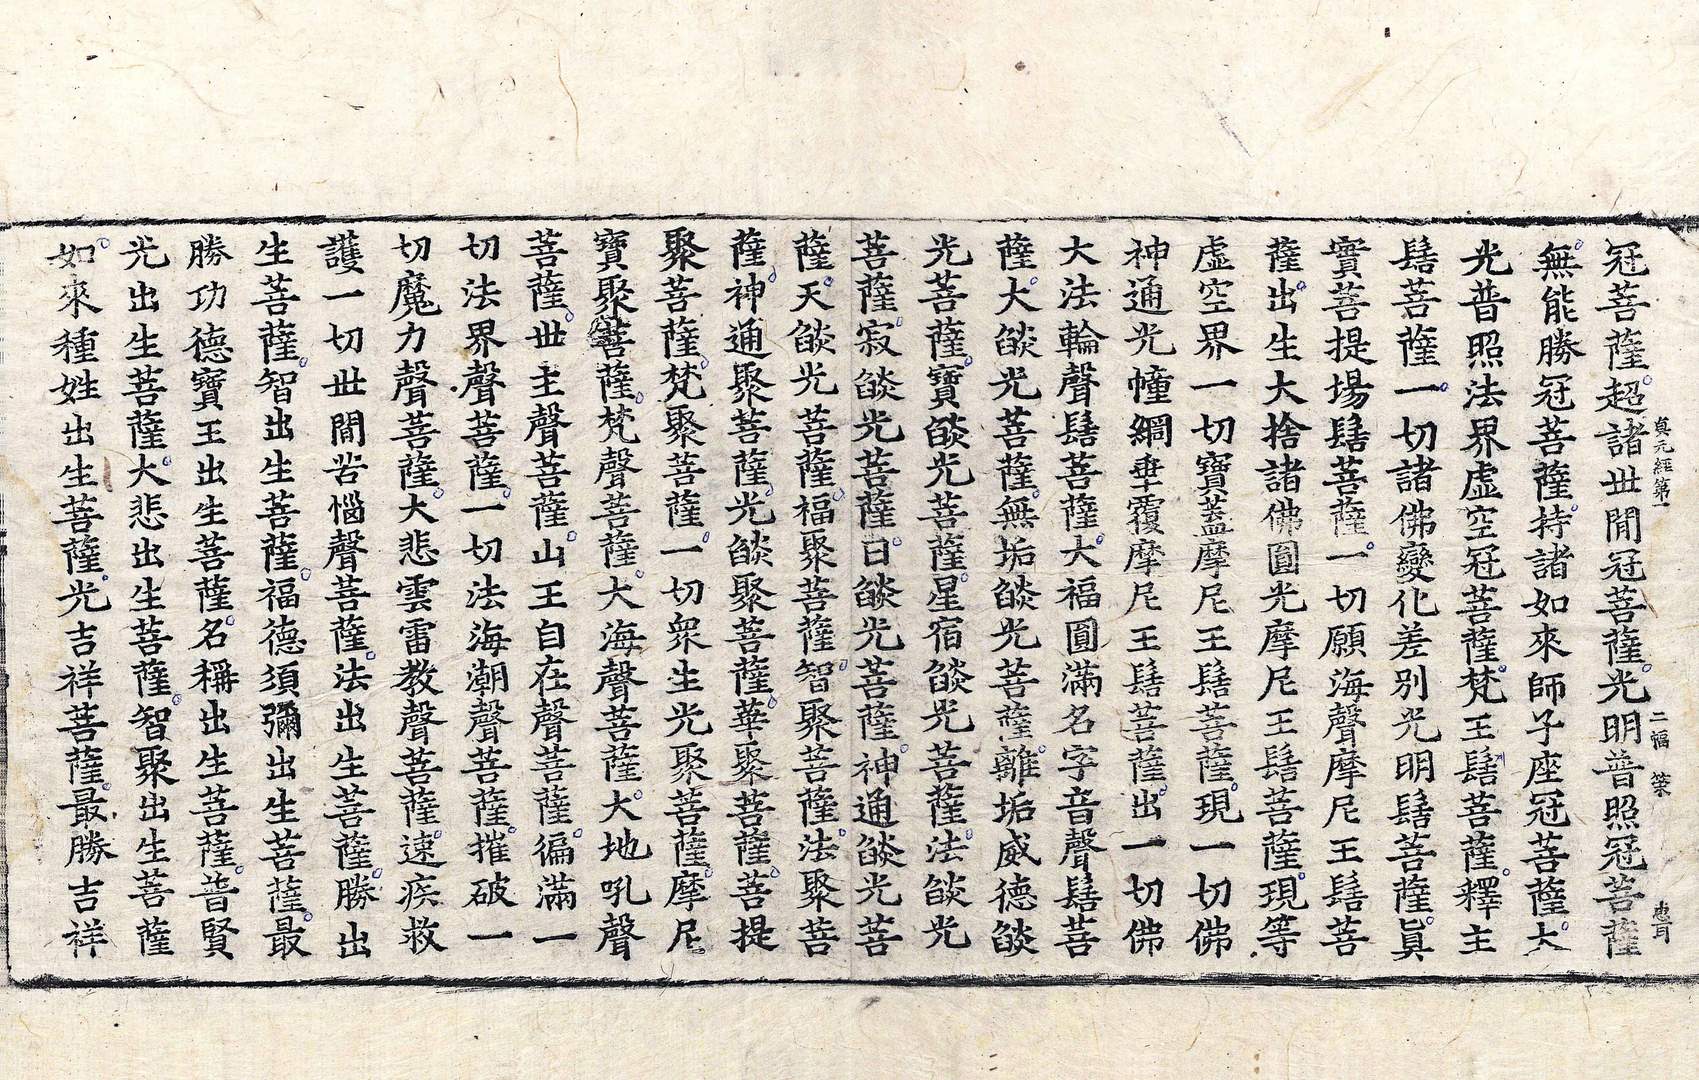 貞元經第一 二幅 䇿 惠茸
冠菩薩超諸世閒冠菩薩光明普照冠菩薩
無能勝冠菩薩持諸如來師子座冠菩薩大
光普照法界虛空冠菩薩梵王髻菩薩釋主
髻菩薩一切諸佛變化差別光明髻菩薩眞
實菩提場髻菩薩一切願海聲摩尼王髻菩
薩出生大捨諸佛圓光摩尼王髻菩薩現等
虛空界一切寶蓋摩尼王髻菩薩現一切佛
神通光幢網垂覆摩尼王髻菩薩出一切佛
大法輪聲髻菩薩大福圓滿名字音聲髻菩
薩大燄光菩薩無垢燄光菩薩離垢威德燄
光菩薩寶燄光菩薩星宿燄光菩薩法燄光
菩薩寂燄光菩薩日燄光菩薩神通燄光菩
薩天燄光菩薩福聚菩薩智聚菩薩法聚菩
薩神通聚菩薩光燄聚菩薩華聚菩薩菩提
聚菩薩梵聚菩薩一切衆生光聚菩薩摩尼
寶聚菩薩梵聲菩薩大海聲菩薩大地吼聲
菩薩世主聲菩薩山王自在聲菩薩徧滿一
切法界聲菩薩一切法海潮聲菩薩摧破一
切魔力聲菩薩大悲雲雷敎聲菩薩速疾救
護一切世間苦惱聲菩薩法出生菩薩勝出
生菩薩智出生菩薩福德須彌出生菩薩最
勝功德寶王出生菩薩名稱出生菩薩普賢
光出生菩薩大悲出生菩薩智聚出生菩薩
如來種姓出生菩薩光吉祥菩薩最勝吉祥